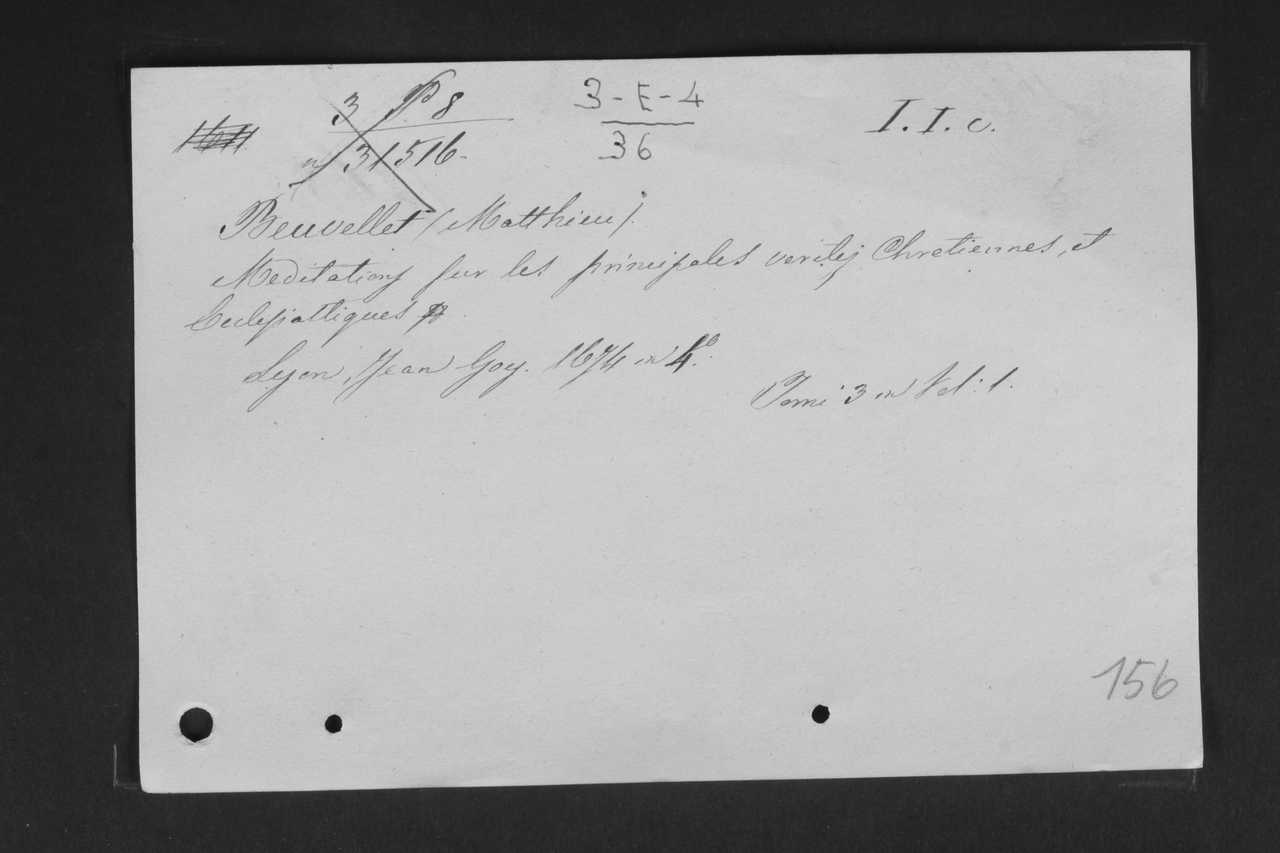 3 P 8 3-E-4 I. I. c.
n/31516. 36
Beuvellet (Matthieu).
Meditations sur les principales verites Chretiennes, et
Eclesiastiques
Lyon, Jean Goy. 1674 in 4º.
Tomi 3 in Vol: 1.
156